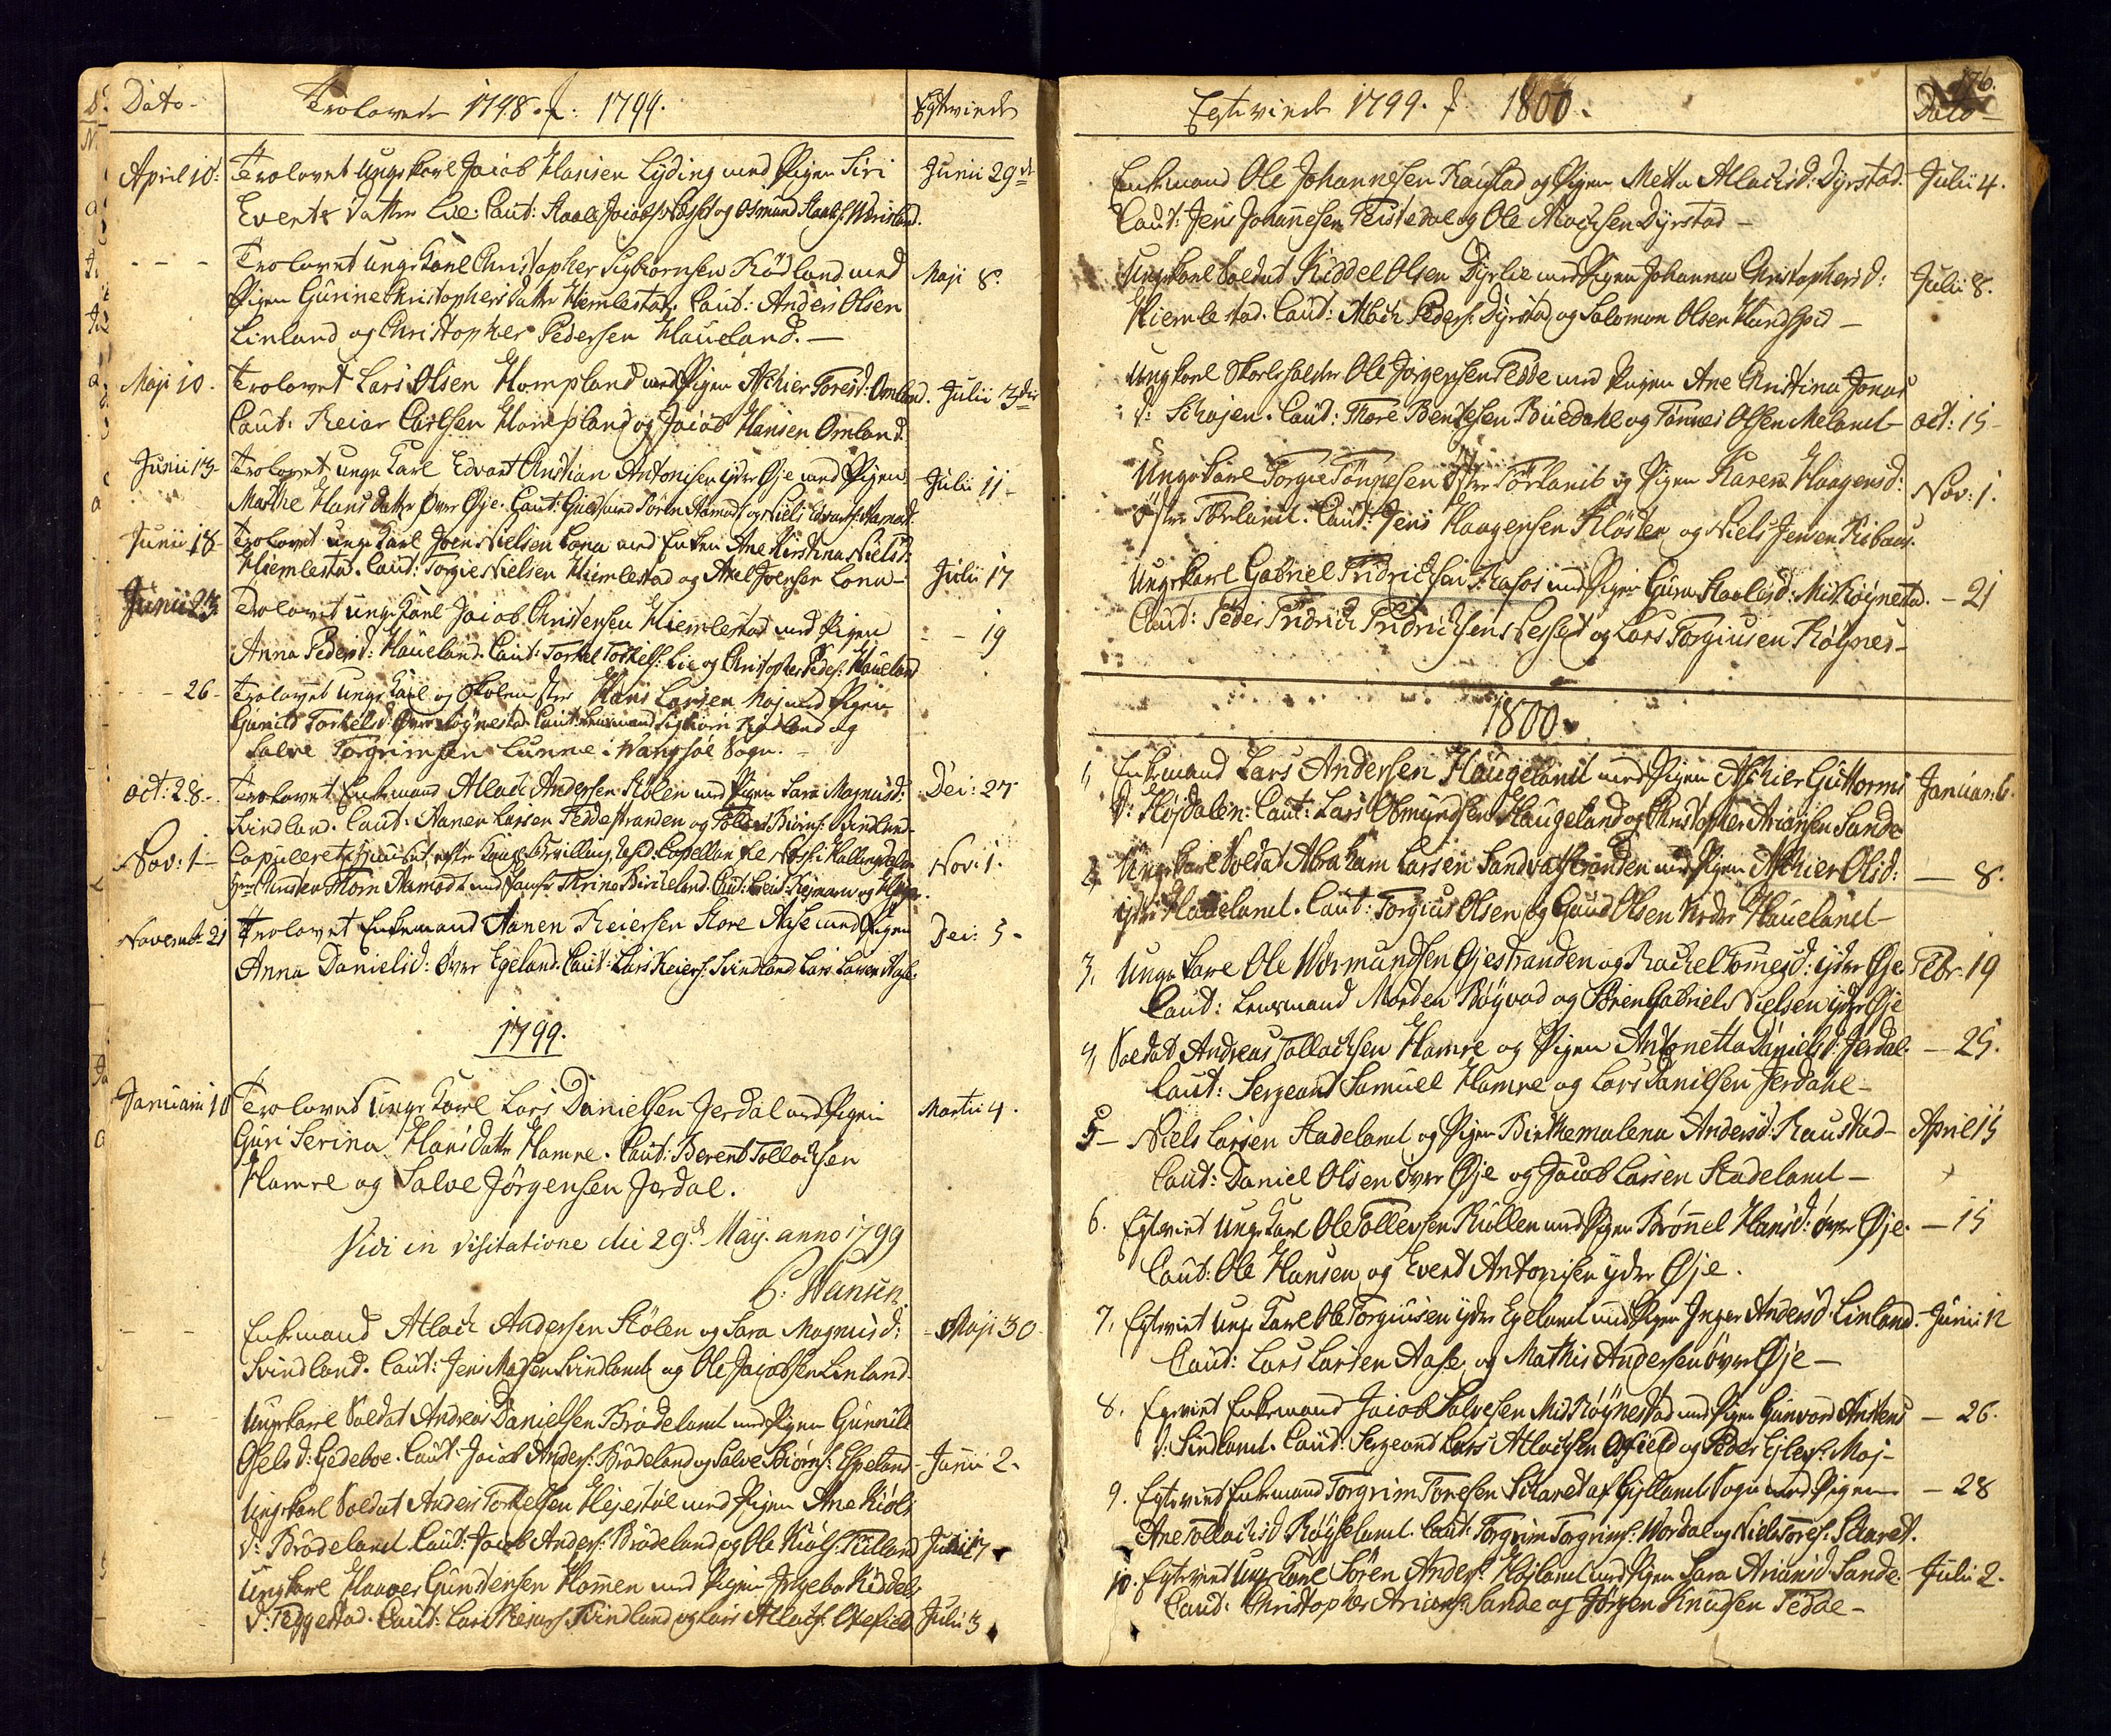 Dato - Trolovede 1798. f: 1799. Egteviede
April 10: Trolovet ungekarl Jacob Hansen Lyding med Pigen Siri Junii 29de
Events datter Lie. Caut: Staale Jacobs: og Osmund Staals:
- - - Trolovet unge Karl Christopher Sigbiørnsen Rødland med Maji 8.
Pigen Gurine Christophersdatter Hiemlestad. Caut: Anders Olsen
Linland og Christopher Pedersen Haueland. -
Maji 10. Trolovet Lars Olsen Hompland med Pigen Aschier Toresd: Omland. Julii 3die
Caut: Reiar Carlsen Hompland og Jacob Hansen Omland.
Junii 13 - Trolovet unge Karl Edvart Christian Antonisen ydre Øje med Pigen Julii 11 -
Marthe Hansdatter Øvre Øje. Caut: Søren Aamodt og Niels Edvards: Aamodt
Junii 18 - Trolovet unge Karl Joen Nielsen Lona med Enken Ane Kirstina Nielsd:
Hiemlestad. Caut: Torgie Nielsen Hiemlestad og Axel Joensen Lona - Julii 17
Junii 23 Trolovet unge Karl Jacob Christensen Hiemlestad med Pigen - - 19
Anna Pedersd: Haueland. Caut: Torkel Torkels: Lie og Christopher Peders: Haueland
- 26 - Trolovet unge Karl og Skolemester Hans Larsen Moj med Pigen
Gunild Torkelsd: Øvre Røynestad. Caut: Lensmand Sigbiørn Rødland og
Salve Torgrimsen Lunne i Wangsøe Sogn. -
Oct: 28 - Trolovet Enkemand Atlack Andersen Stølen med Pigen Sara Magnusd: Dei: 27
Svindland. Caut: Aanen Larsen Feddestranden og Tollev Biørns: Svindland
Nov: 1 - Copuleret i Huuset, efter Kongl: Bevilling, Resid: Capellan til Næss i Hallingdalen Nov: 1.
Hr: Christen Thorn Aamodt med Jomfr: Thrine Birkeland. Caut:
Novemb: 21 Trolovet Enkemand Aanen Reiersen Store Aase med Pigen Dei: 5 -
Anna Danielsd: Øvre Egeland. Caut: Lars Reiers: Svindland Lars Larsen Aase.
1799.
Januarii 10 Trolovet Unge Karl Lars Danielsen Jerdal med Pigen Martii 4.
Guri Serina Hansdatter Hamre. Caut: Berent Tollachsen
Hamre og Salve Jörgensen Jerdal.
Vidi in visitatione die 29d: Maij. anno 1799
P: Hansen.
Enkemand Atlack Andersen Stölen og Sara Magnusd: - Maji 30
Svindland. Caut: Jens Madsen Svindland og Ole Jacobsen Linland
Ungekarl Soldat Andreas Danielsen Brödeland med Pigen Gunnild
Oselsd: Gedeboe. Caut: Jacob Anders: Brödeland og Salve Biörns: Espeland - Junii 2.
Ungekarl Soldat Anders Torkelsen Hejestøl med Pigen Ane Kiöls
d: Brödeland. Caut: Jacob Anders: Brödeland og Ole Kiöls: Tilland Junii 17
Ungkarl Haaver Gundersen Homen med Pigen Ingebor Kiddels
d: Teggestad. Caut: Lars Reiars: Svindland og Lars Atlacks: Oxefield Julii 3
Egteviede 1799. f. 1800. 176. Dato -
Enkemand Ole Johannesen Raustad og Pigen Metta Atlachsd: Dyrstad - Julii 4.
Caut: Jens Johannesen Teistedal og Ole Atlachsen Dyrstad -
Ungekarl Soldat Kiddel Olsen Dyrlie med Pigen Johanna Christophersd: Julii 8.
Hiemlestad. Caut: Atlach Peders: Dyrstad og Salomon Olsen Handspid -
Ungkarl Skoleholder Ole Jørgensen Fedde med Pigen Ane Christina Jonas
d: Schojen. Caut: Thore Bentsen Buedahl og Tønnes Olsen Meland - Oct: 15 -
Ungekarl Torgie Tønnesen Østre Førland og Pigen Karen Haagensd: Nov: 1.
Østre Førland. Caut: Jens Haagensen Kløster og Niels Jensen Risbaar.
Ungekarl Gabriel Fridrichsen Træfos med Pigen Guru Staalesd: Midt Røynestad. - 21
Caut: Peder Fridrich Fridrichsen og Lars Torgiusen Røynes -
1800.
1, Enkemand Lars Andersen Haugeland med Pigen Aschier Guttorms Januar: 6.
d: Fløjsdalen: Caut: Lars Osmundsen Haugeland og Christopher Ariansen Sande
2, Ungekarl Soldat Abraham Larsen Sandvatstranden med Pigen Aschier Olsd: - 8.
ydre Haueland. Caut: Torgius Olsen og Gaud Olsen Nedre Haueland -
3, Unge Karl Ole Wormundsen Øjestranden og Rachel Tomesd: ydre Øje Febr: 19
Caut: Lensmand Morten Røyvad og Søren Gabriel Nielsen ydre Øje
4, Soldat Andreas Tollachsen Hamre og Pigen Antonetta Danielsd: Jerdal. - 25.
Caut: Sergeant Samuel Hamre og Lars Danielsen Jerdahl -
5 - Niels Larsen Stadeland og Pigen Birthemalena Andersd: Raustad - April 15
Caut: Daniel Olsen øvre Øje og Jacob Larsen Stadeland -
6. Egteviet Unge Karl Ole Tollevsen Rullen med Pigen Brønnel Hansd: øvre Øje. - 15
Caut: Ole Hansen og Evert Antonisen ydre Øje.
7, Egteviet unge Karl Ole Torgiusen ydre Egeland med Pigen Inger Andersd: Linland. - Junii 12
Caut: Lars Larsen Aase og Mathis Andersen øvre Øje -
8. Egteviet Enkemand Jacob Salvesen Mid Røynestad med Pigen Gunvord Anstens - 26.
d: Sindland. Caut: Sergeant Lars Atlachsen Oxfield og Peder Ejlers: Moj -
9. Egteviet Enkemand Torgrim Toresen Skaret af Gyllands Sogn med Pigen - 28
Ane Tollachsd: Røysseland. Caut: Torgrim Torgrims: Wordal og Niels Tores: Skaret.
10. Egteviet Unge Karl Søren Anders: Højland med Pigen Sara Ariansd: Sande. Julii 2.
Caut: Christopher Arians: Sande og Jørgen Knudsen Fedde -